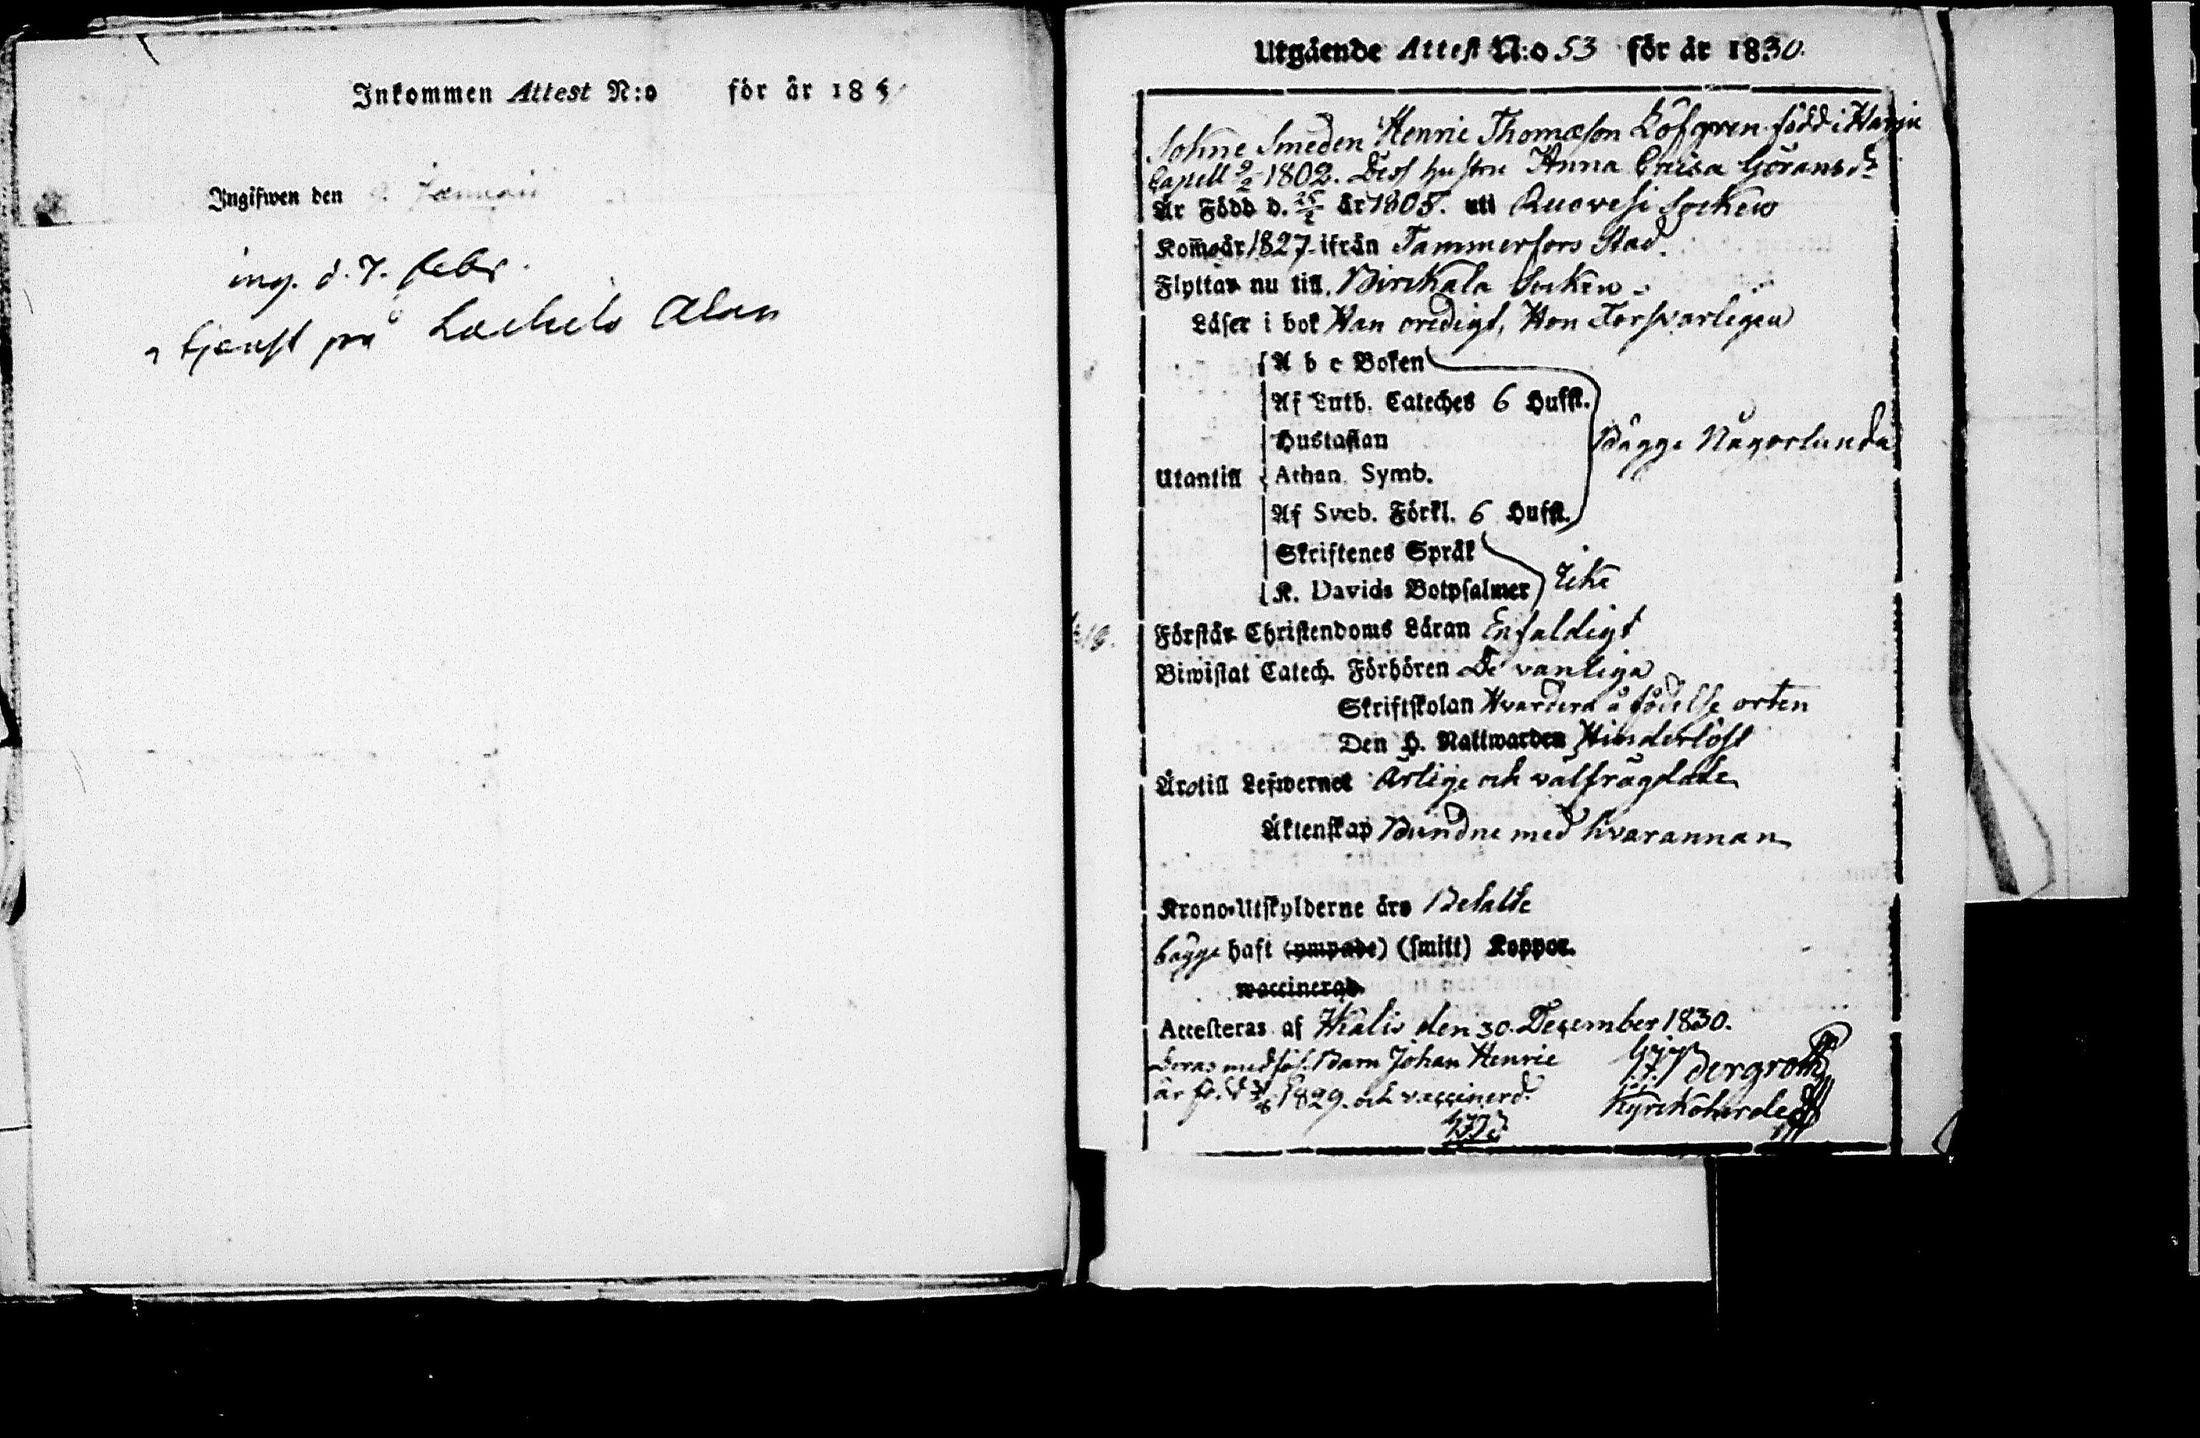 Inkommen Attest N:o för år 183
Ingifwen den Januari
ing. d. 7. febr.
tjenst på
Utgående Attest N:o 53 för år 1830.
Sokne Smeden Henric Thomæson Löfgren född i Harju
Capell 9/2 1802. Dess hustru Anna Caisa Göransdr
Är Född d. 25/2 år 1805. uti Ruovesi Socken
Kom̃o år 1827 ifrån Tammerfors Stad.
Flyttar nu till Birckala Socken
Läser i bok Han oredigt, Hon Försvarligen
A b c Boken
Af Luth. Cateches 6 Hufst.
Hustaflan
Bägge Någorlunda
Utantill Athan. Symb.
Af Sveb. Förkl. 6 Hufst.
Skriftenes Språk
K. Davids Botpsalmer Icke
Förstår Christendoms Läran Enfaldigt
Biwistat Catech. Förhören De vanliga
Skriftskolan Hvardera å födelse orten
Den H. Nattwarden Hinderlöst
Äro till Lefwernet Ärlige och välfrägdade
Äktenskap Bundne med hvarannan
Krono-Utskylderne äro Betalte
bägge haft (ympade) (smitt) Koppor.
waccinerad.
Attesteras af Hvalis den 30. December 1830.
Deras medföl. Barn Johan Henric
Bergroth
är fö. d 1829. och vaccinerd.
Kyrckoherde